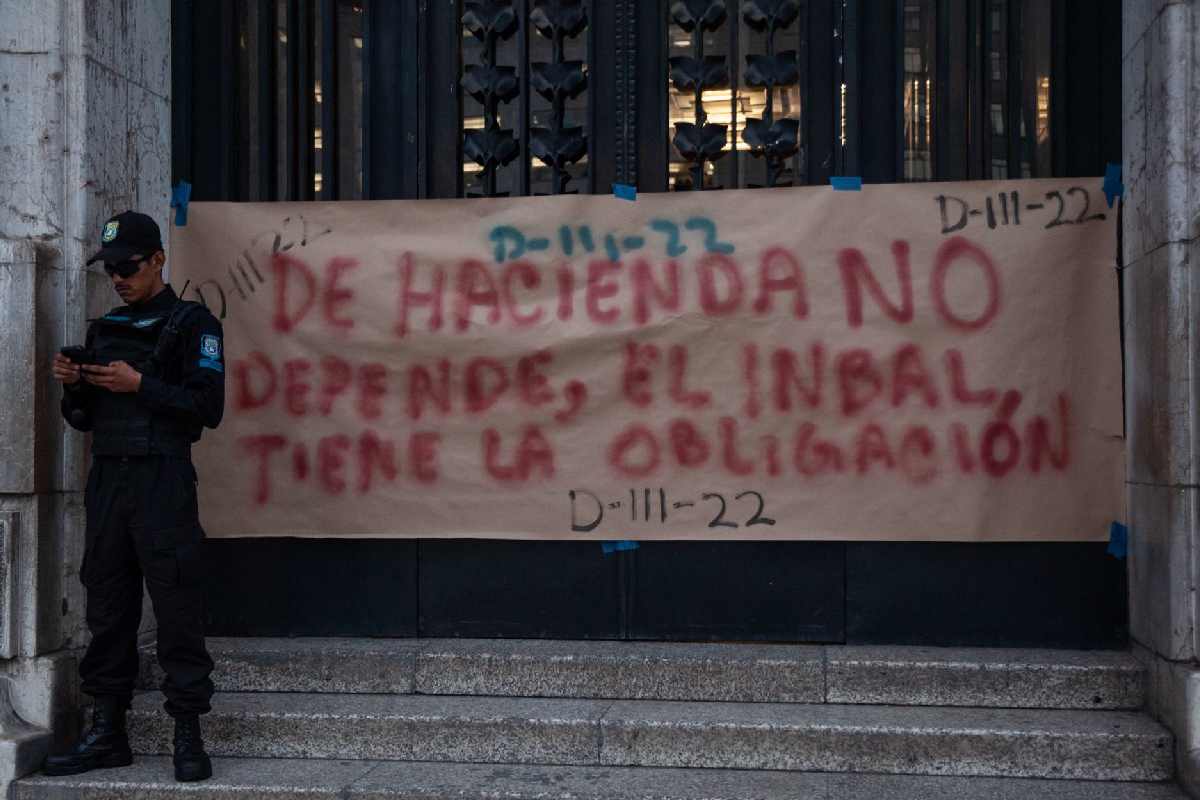 D-III-22
D-III-22
D-III-22
DE HACIENDA NO
DEPENDE, EL INBAL,
TIENE LA OBLIGACIÓN
D-III-22